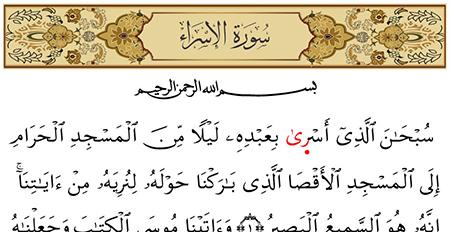 سُورَةُ الإِسْرَاءِ
بسم الله الرحمن الرحيم
سُبْحَٰنَ ٱلَّذِىٓ أَسْرَىٰ بِعَبْدِهِۦ لَيْلًا مِّنَ ٱلْمَسْجِدِ ٱلْحَرَامِ
إِلَى ٱلْمَسْجِدِ ٱلْأَقْصَا ٱلَّذِى بَٰرَكْنَا حَوْلَهُۥ لِنُرِيَهُۥ مِنْ ءَايَٰتِنَآ ۚ
إِنَّهُۥ هُوَ ٱلسَّمِيعُ ٱلْبَصِيرُ ۝١ وَءَاتَيْنَا مُوسَى ٱلْكِتَٰبَ وَجَعَلْنَٰهُ